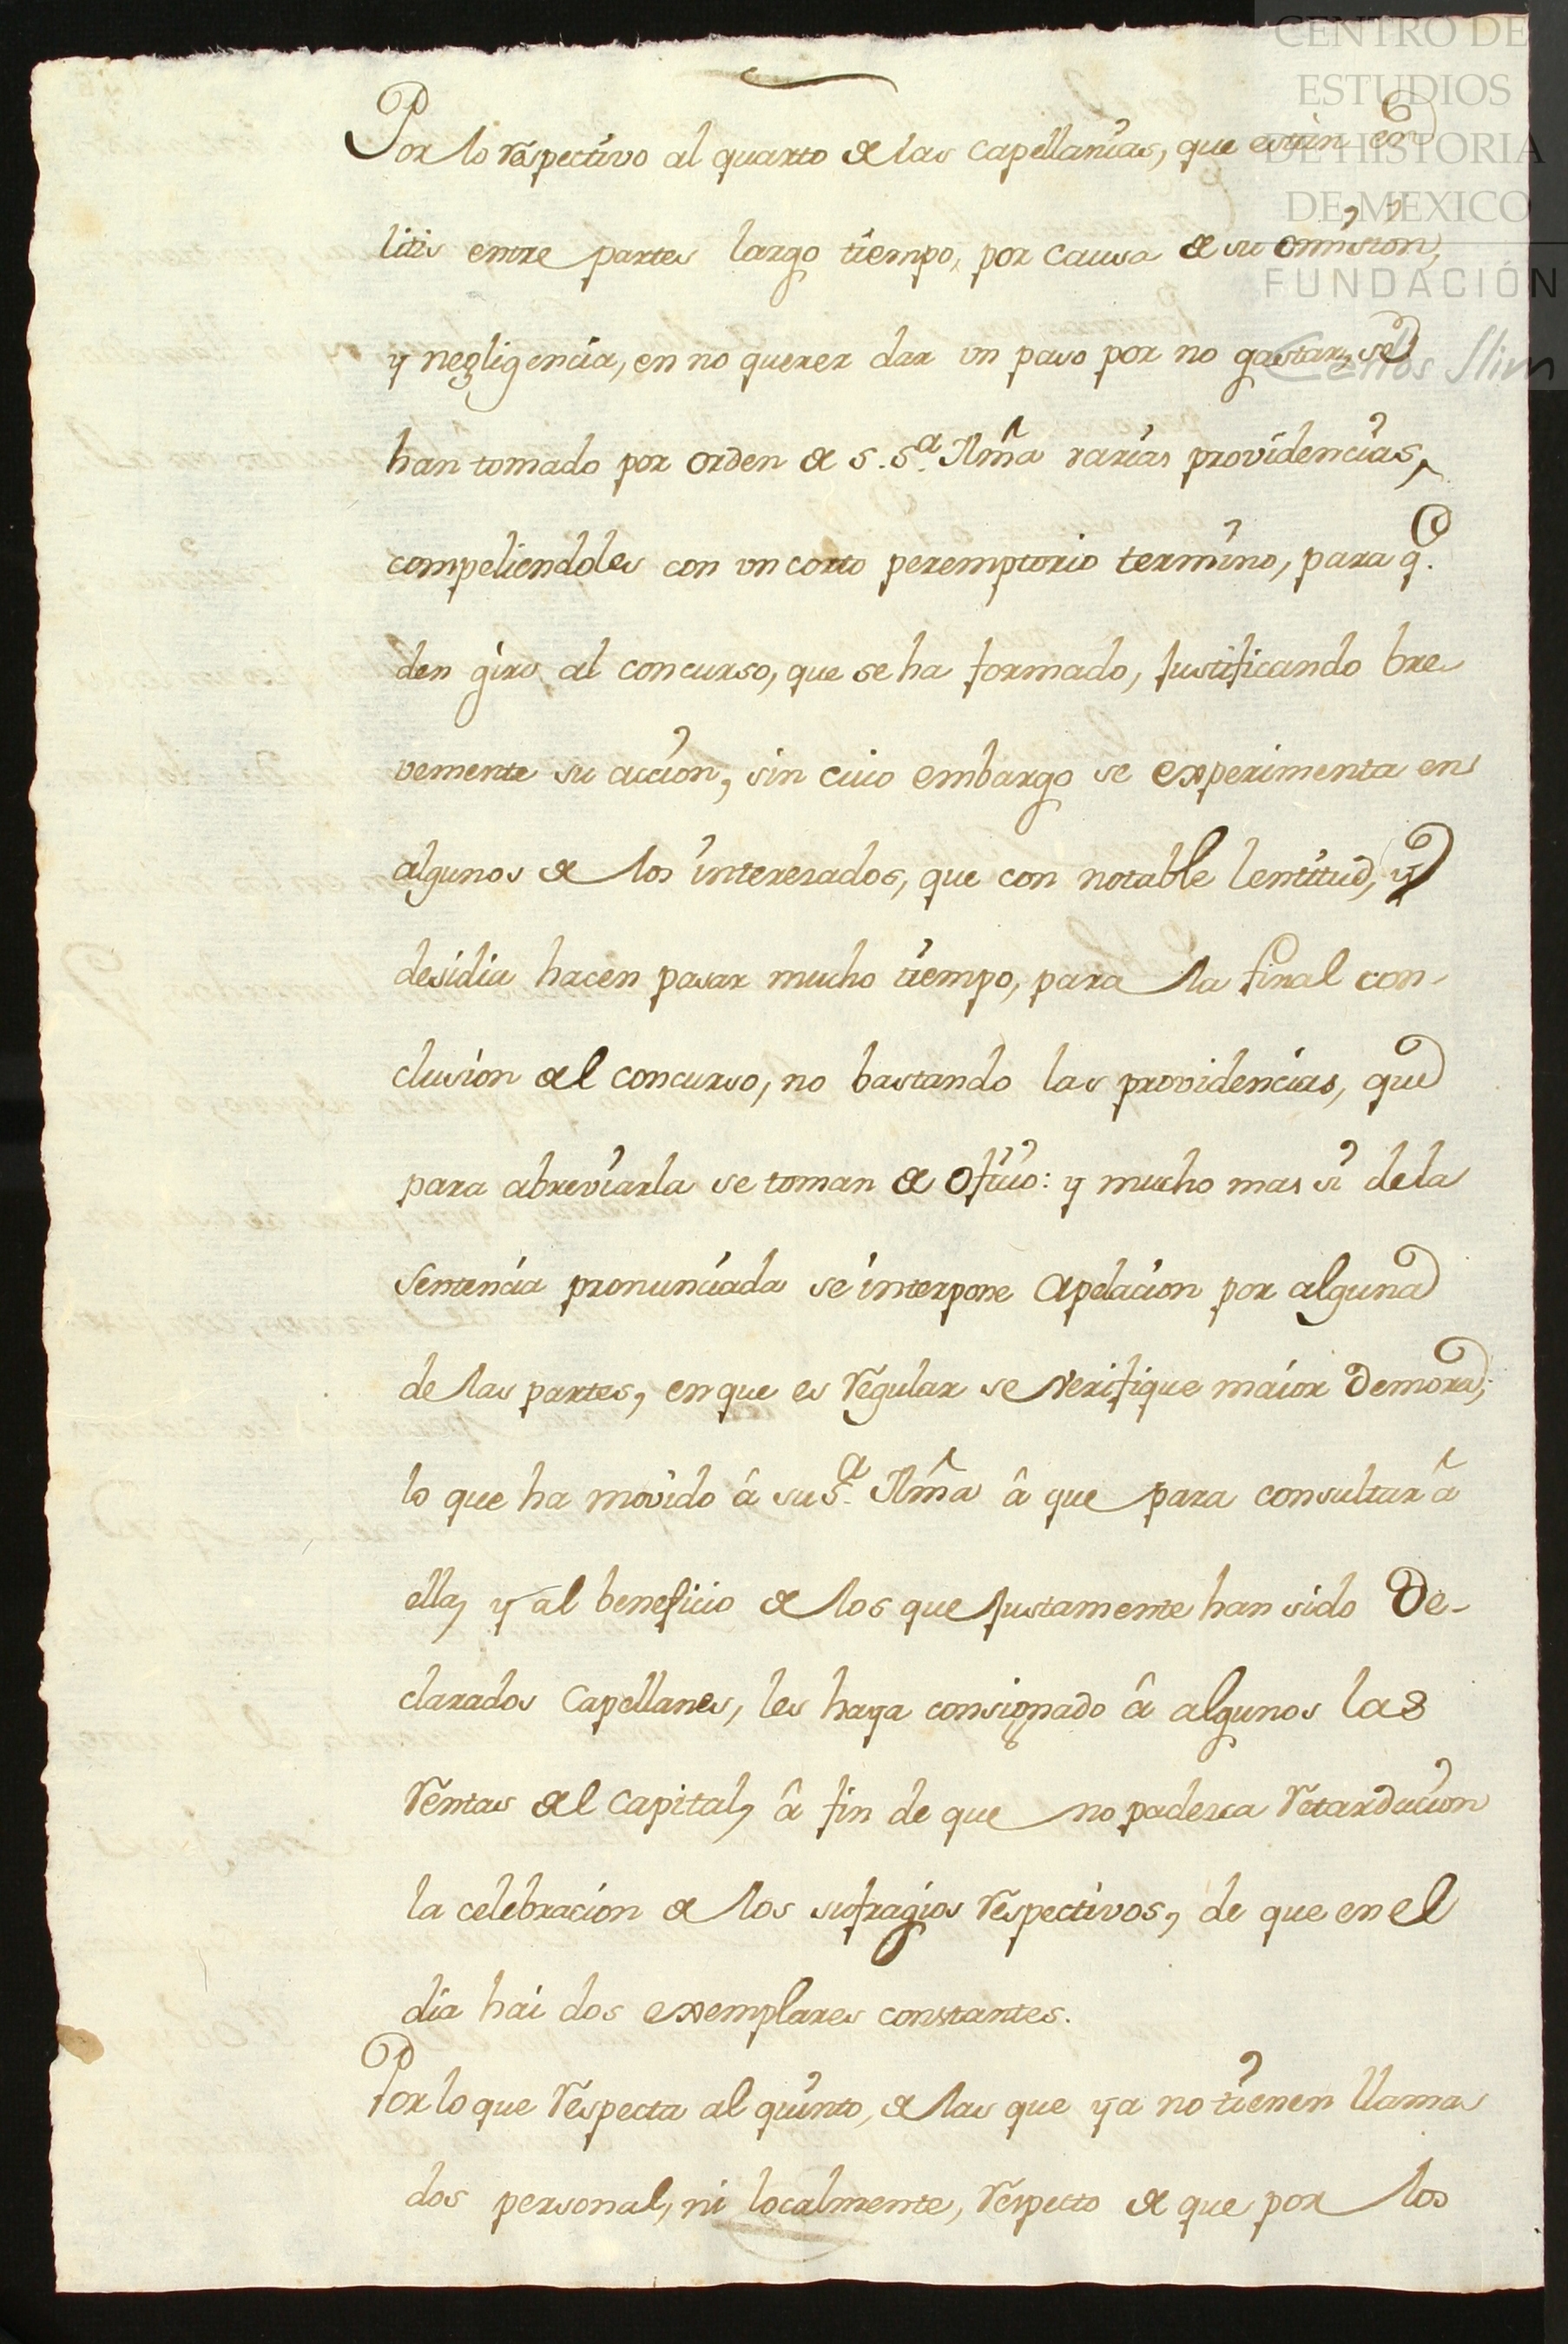 CENTRO DE
ESTUDIOS
DE HISTORIA
DE MEXICO
FUNDACIÓN
Carlos Slim
Por lo respectivo al quarto de las capellanias, que estàn en
litis entre partes largo tiempo, por causa de su omision,
y negligencia, en no querer dar un paso por no gastar, se
han tomado por orden de S. S.ª Ilmâ varias providencias,
compeliendoles con un corto peremptorio termino, para q.e
den giro al concurso, que se ha formado, justificando bre
vemente su accion, sin cuio embargo se experimenta en
algunos de los interesados, que con notable lentitud, y
desidia hacen pasar mucho tiempo, para la final con-
clusion del concurso, no bastando las providencias, que
para abreviarla se toman de oficio: y mucho mas si de la
Sentencia pronunciada se interpone Apelacion por alguna
de las partes, en que es regular se verifique maior demora;
lo que ha movido â su S.ª Ilmâ â que para consultar â
ella, y al beneficio de los que justamente han sido De-
clarados Capellanes, les haya consignado â algunos las
rentas del capital, â fin de que no padesca retardacion
la celebracion de los sufragios respectivos, de que en el
dia hai dos exemplares constantes.
Por lo que respecta al quinto, de las que ya no tienen llama
dos personal, ni localmente, respecto de que por los